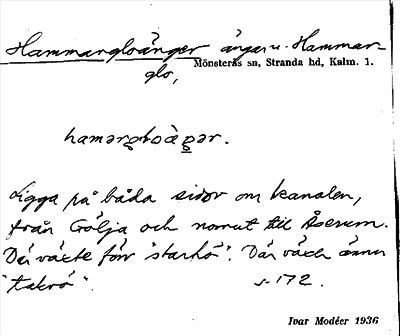 Hammargloänger ängar u. Hammar-
glo,
Mönsterås sn, Stranda hd, Kalm. l.
hamərgloàŋər.
Ligga på båda sidor om kanalen,
från Gölja och norrut till Åserum.
Där växte förr "starhö". Där växer ännu
"takrö".
s. 172.
Ivar Modéer 1936